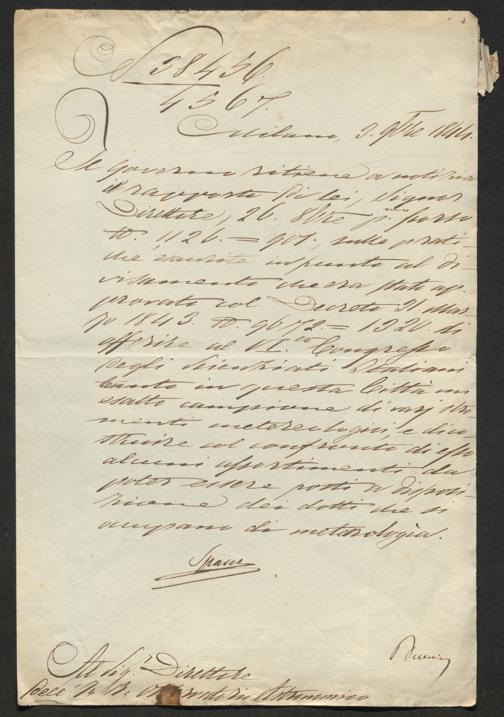 N 38456
4567.
Milano, 3. 9bre 1844.
Il governo ritiene a notizia
il rapporto di lei, Signor
Direttore, 26. 8bre p.º passo
N. 1126. = 901, sulle prati-
che esaurite in punto al di-
visamento che era stato ap-
provato col Decreto 31 Mar-
zo 1843. N. 9672 = 1220. di
offrire al VI.to Congresso
degli Scienziati Italiani
tenuto in questa Città un
esatto campione di varj stro-
menti meteorologici, e di co-
struire col confronto di essi
alcuni assortimenti da
poter essere posti a disposi-
zione dei dotti che si
occupano di meteorologia.
Al Sig.r Direttore
dell' I. R. Osservatorio Astronomico